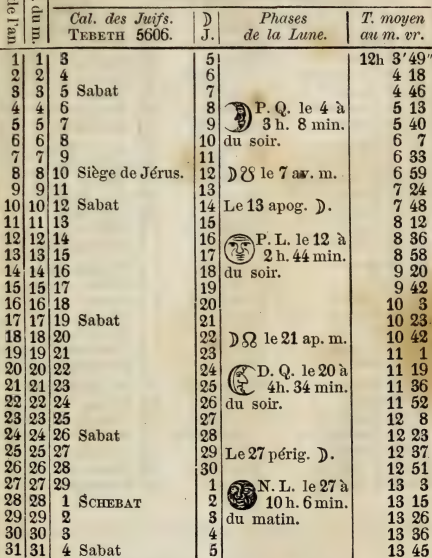 de l'an | du m. | Cal. des Juifs. TEBETH 5606. | ☽ J. | Phases de la Lune. | T. moyen au m. vr.
1 1 3 5 12h 3'49"
2 2 4 6 4 18
3 3 5 Sabat 7 4 46
4 4 6 8 P. Q. le 4 à 5 13
5 5 7 9 3 h. 8 min. 5 40
6 6 8 10 du soir. 6 7
7 7 9 11 6 33
8 8 10 Siège de Jérus. 12 ☽☋ le 7 av. m. 6 59
9 9 11 13 7 24
10 10 12 Sabat 14 Le 13 apog. ☽. 7 48
11 11 13 15 8 12
12 12 14 16 P. L. le 12 à 8 36
13 13 15 17 2 h. 44 min. 8 58
14 14 16 18 du soir. 9 20
15 15 17 19 9 42
16 16 18 20 10 3
17 17 19 Sabat 21 10 23
18 18 20 22 ☽☊ le 21 ap. m. 10 42
19 19 21 23 11 1
20 20 22 24 D. Q. le 20 à 11 19
21 21 23 25 4h. 34 min. 11 36
22 22 24 26 du soir. 11 52
23 23 25 27 12 8
24 24 26 Sabat 28 12 23
25 25 27 29 Le 27 périg. ☽. 12 37
26 26 28 30 12 51
27 27 29 1 N. L. le 27 à 13 3
28 28 1 SCHEBAT 2 10 h. 6 min. 13 15
29 29 2 3 du matin. 13 26
30 30 3 4 13 36
31 31 4 Sabat 5 13 45